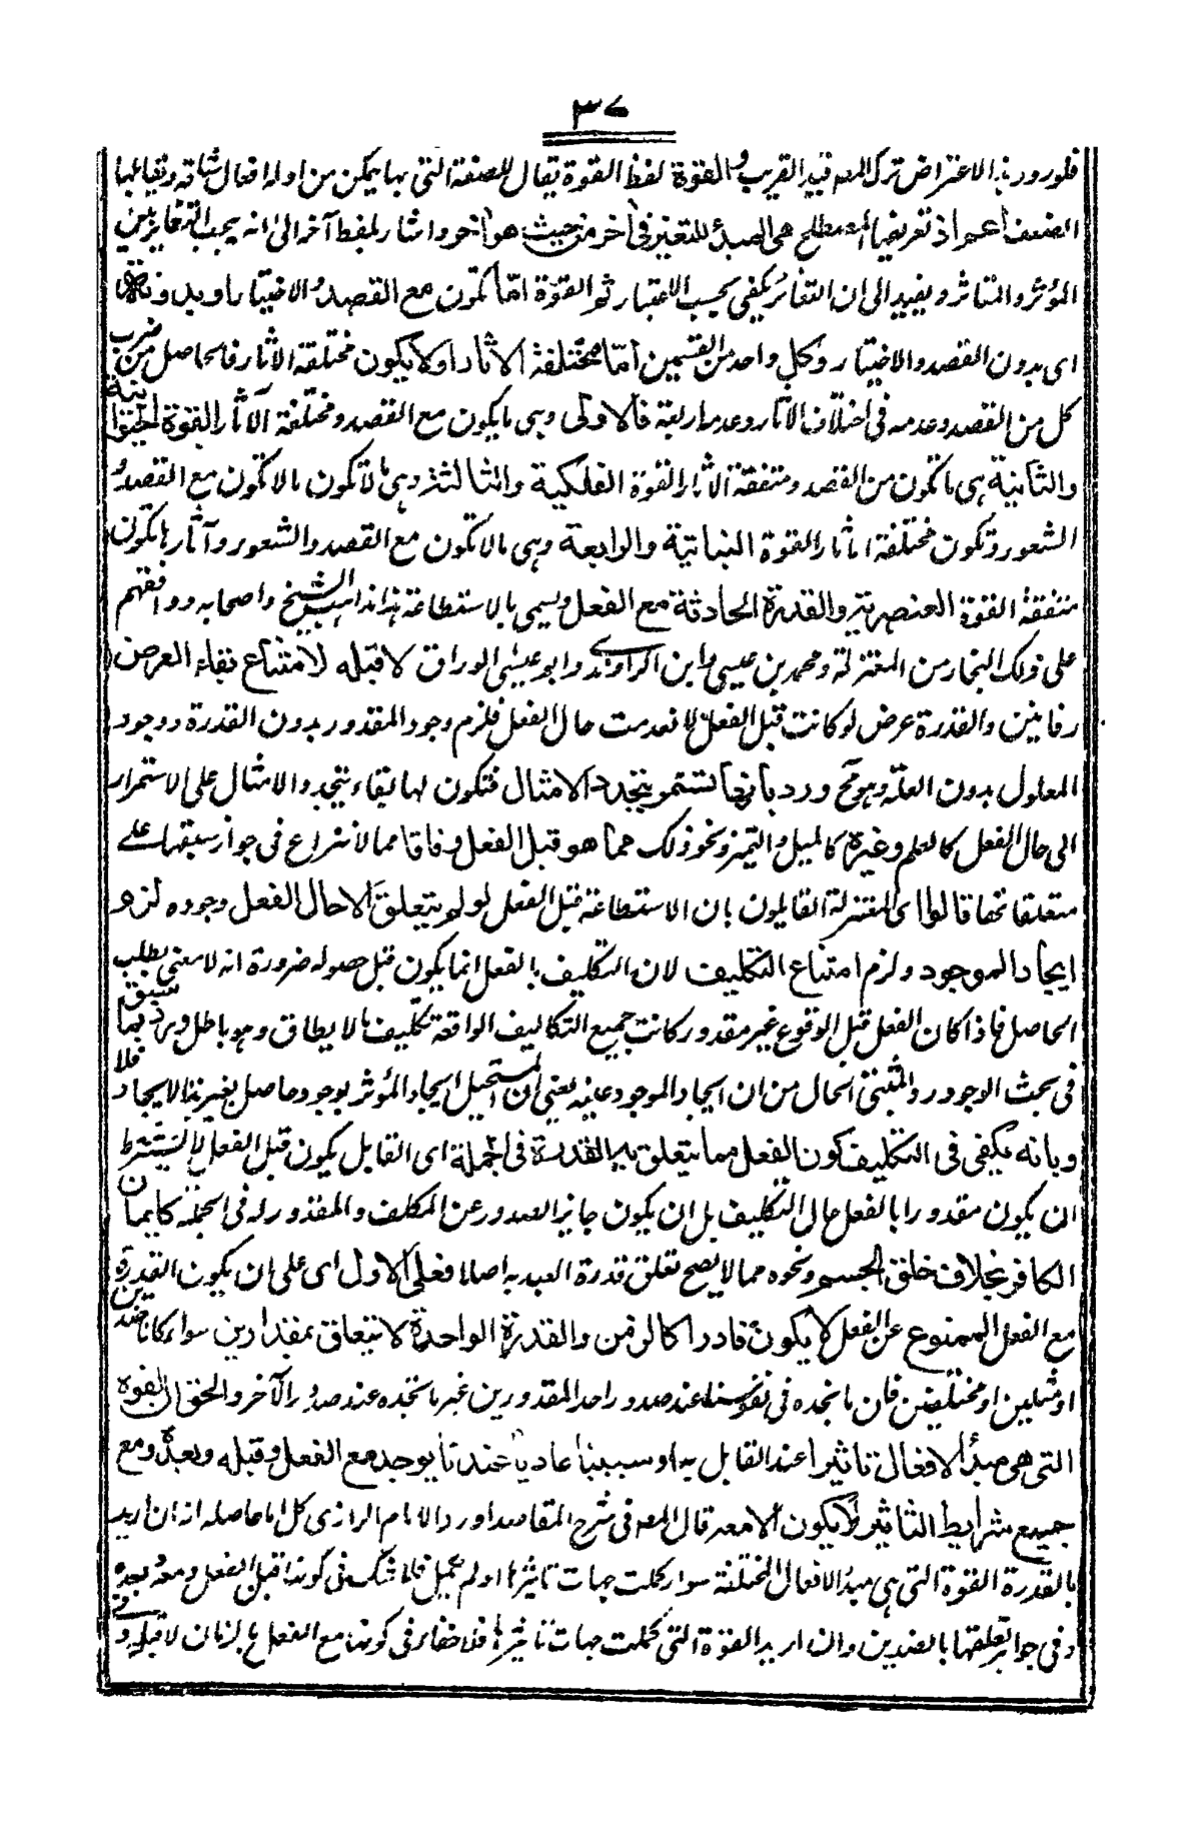 ٣٧
فلورود هذا الاعتراض ترك المصـ قيد القريب والقوة لفظ القوة يقال للصفة التي بها يمكن من اوله افعال شاقة ويقابلها
الضعف اعم اذ تعريفها المصطلح هى المبدأ للتغير فى آخر من حيث هو آخر واشار بلفظ آخر الى انه يجب التغاير بين
المؤثر والمتاثر وبقيد الى ان التغاير يكفى بحسب الاعتبار ثم القوة امّا تكون مع القصد والاختيار او بدونهما
اى بدون القصد والاختيار وكل واحد من القسمين امّا مختلفة الآثار او لا يكون مختلفة الآثار فالحاصل من ضرب
كل من القصد وعدمه فى اختلاف الآثار وعدمها اربعة فالاولى وهى ما يكون مع القصد ومختلفة الآثار القوة الحيوانية
والثانية هى ما تكون مع القصد ومتفقة الآثار القوة الفلكية والثالثة وهى ما لا تكون مع القصد و
الشعور وتكون مختلفة الآثار القوة النباتية والرابعة وهى ما لا تكون مع القصد والشعور وآثارها تكون
متفقة القوة العنصرية والقدرة الحادثة مع الفعل ويسمى بالاستطاعة هذا مذهب الشيخ واصحابه ووافقهم
على ذلك النجار من المعتزلة ومحمد بن عيسى وابن الراوندى وابو عيسى الوراق لا قبله لامتناع بقاء العرض
زمانين والقدرة عرض لو كانت قبل الفعل لانعدمت حال الفعل فلزم وجود المقدور بدون القدرة ووجود
المعلول بدون العلة وهو مح ورد بانها تستمر بتجدد الامثال فتكون لها بقاء بتجدد الامثال على الاستمرار
الى حال الفعل كالعلم وغيره كالميل والتميز ونحو ذلك مما هو قبل الفعل وفاقا مما لا نزاع فى جواز سبقها على
متعلقاتها قالوا اى المعتزلة القايلون بان الاستطاعة قبل الفعل لو لم يتعلق الا حال الفعل وجوده لزم
ايجاد الموجود ولزم امتناع التكليف لان التكليف بالفعل انما يكون قبل حصوله ضرورة انه لا معنى لطلب
الحاصل فاذا كان الفعل قبل الوقوع غير مقدور كانت جميع التكاليف الواقعة تكليف ما لا يطاق وهو باطل ورد بما سبق
فى بحث الوجود من ان ايجاد الموجود عليه يعنى ان المستحيل ايجاد المؤثر بوجود حاصل بغير هذا الايجاد فلا
وبانه يكفى فى التكليف كون الفعل مما يتعلق به القدرة فى الجملة اى القابل يكون قبل الفعل لا يشترط
ان يكون مقدورا بالفعل حال التكليف بل ان يكون جايز الصدور عن المكلف والمقدور له فى الجملة كايمان
الكافر بخلاف خلق الجسم ونحوه مما لا يصح تعلق قدرة العبد به اصلا فعلى الاول اى على ان يكون القدرة
مع الفعل الممنوع عن الفعل لا يكون قادرا كالزمن والقدرة الواحدة لا تتعلق بمقدورين سواء كانا ضدين
او مثلين او مختلفين فان ما نجده فى نفوسنا عند صدور احد المقدورين غير ما نجده عند صدور الآخر والحق ان القوة
التى هى مبدأ الافعال تاثيرا عند القابل به او سببا عاديا عندنا يوجد مع الفعل وقبله وبعده ومع
جميع شرايط التاثير لا يكون الا معه قال المصـ فى شرح المقاصد اورد الامام الرازى كلاما حاصله انه ان اريد
بالقدرة القوة التى هى مبدء الافعال المختلفة سواء كملت جهات تاثيرها او لم تكمل فلا شك فى كونها قبل الفعل ومعه وبعده
وفى جواز تعلقها بالضدين وان اريد القوة التى كملت جهات تاثيرها فلا خفاء فى كونها مع الفعل بالزمان لا قبله و